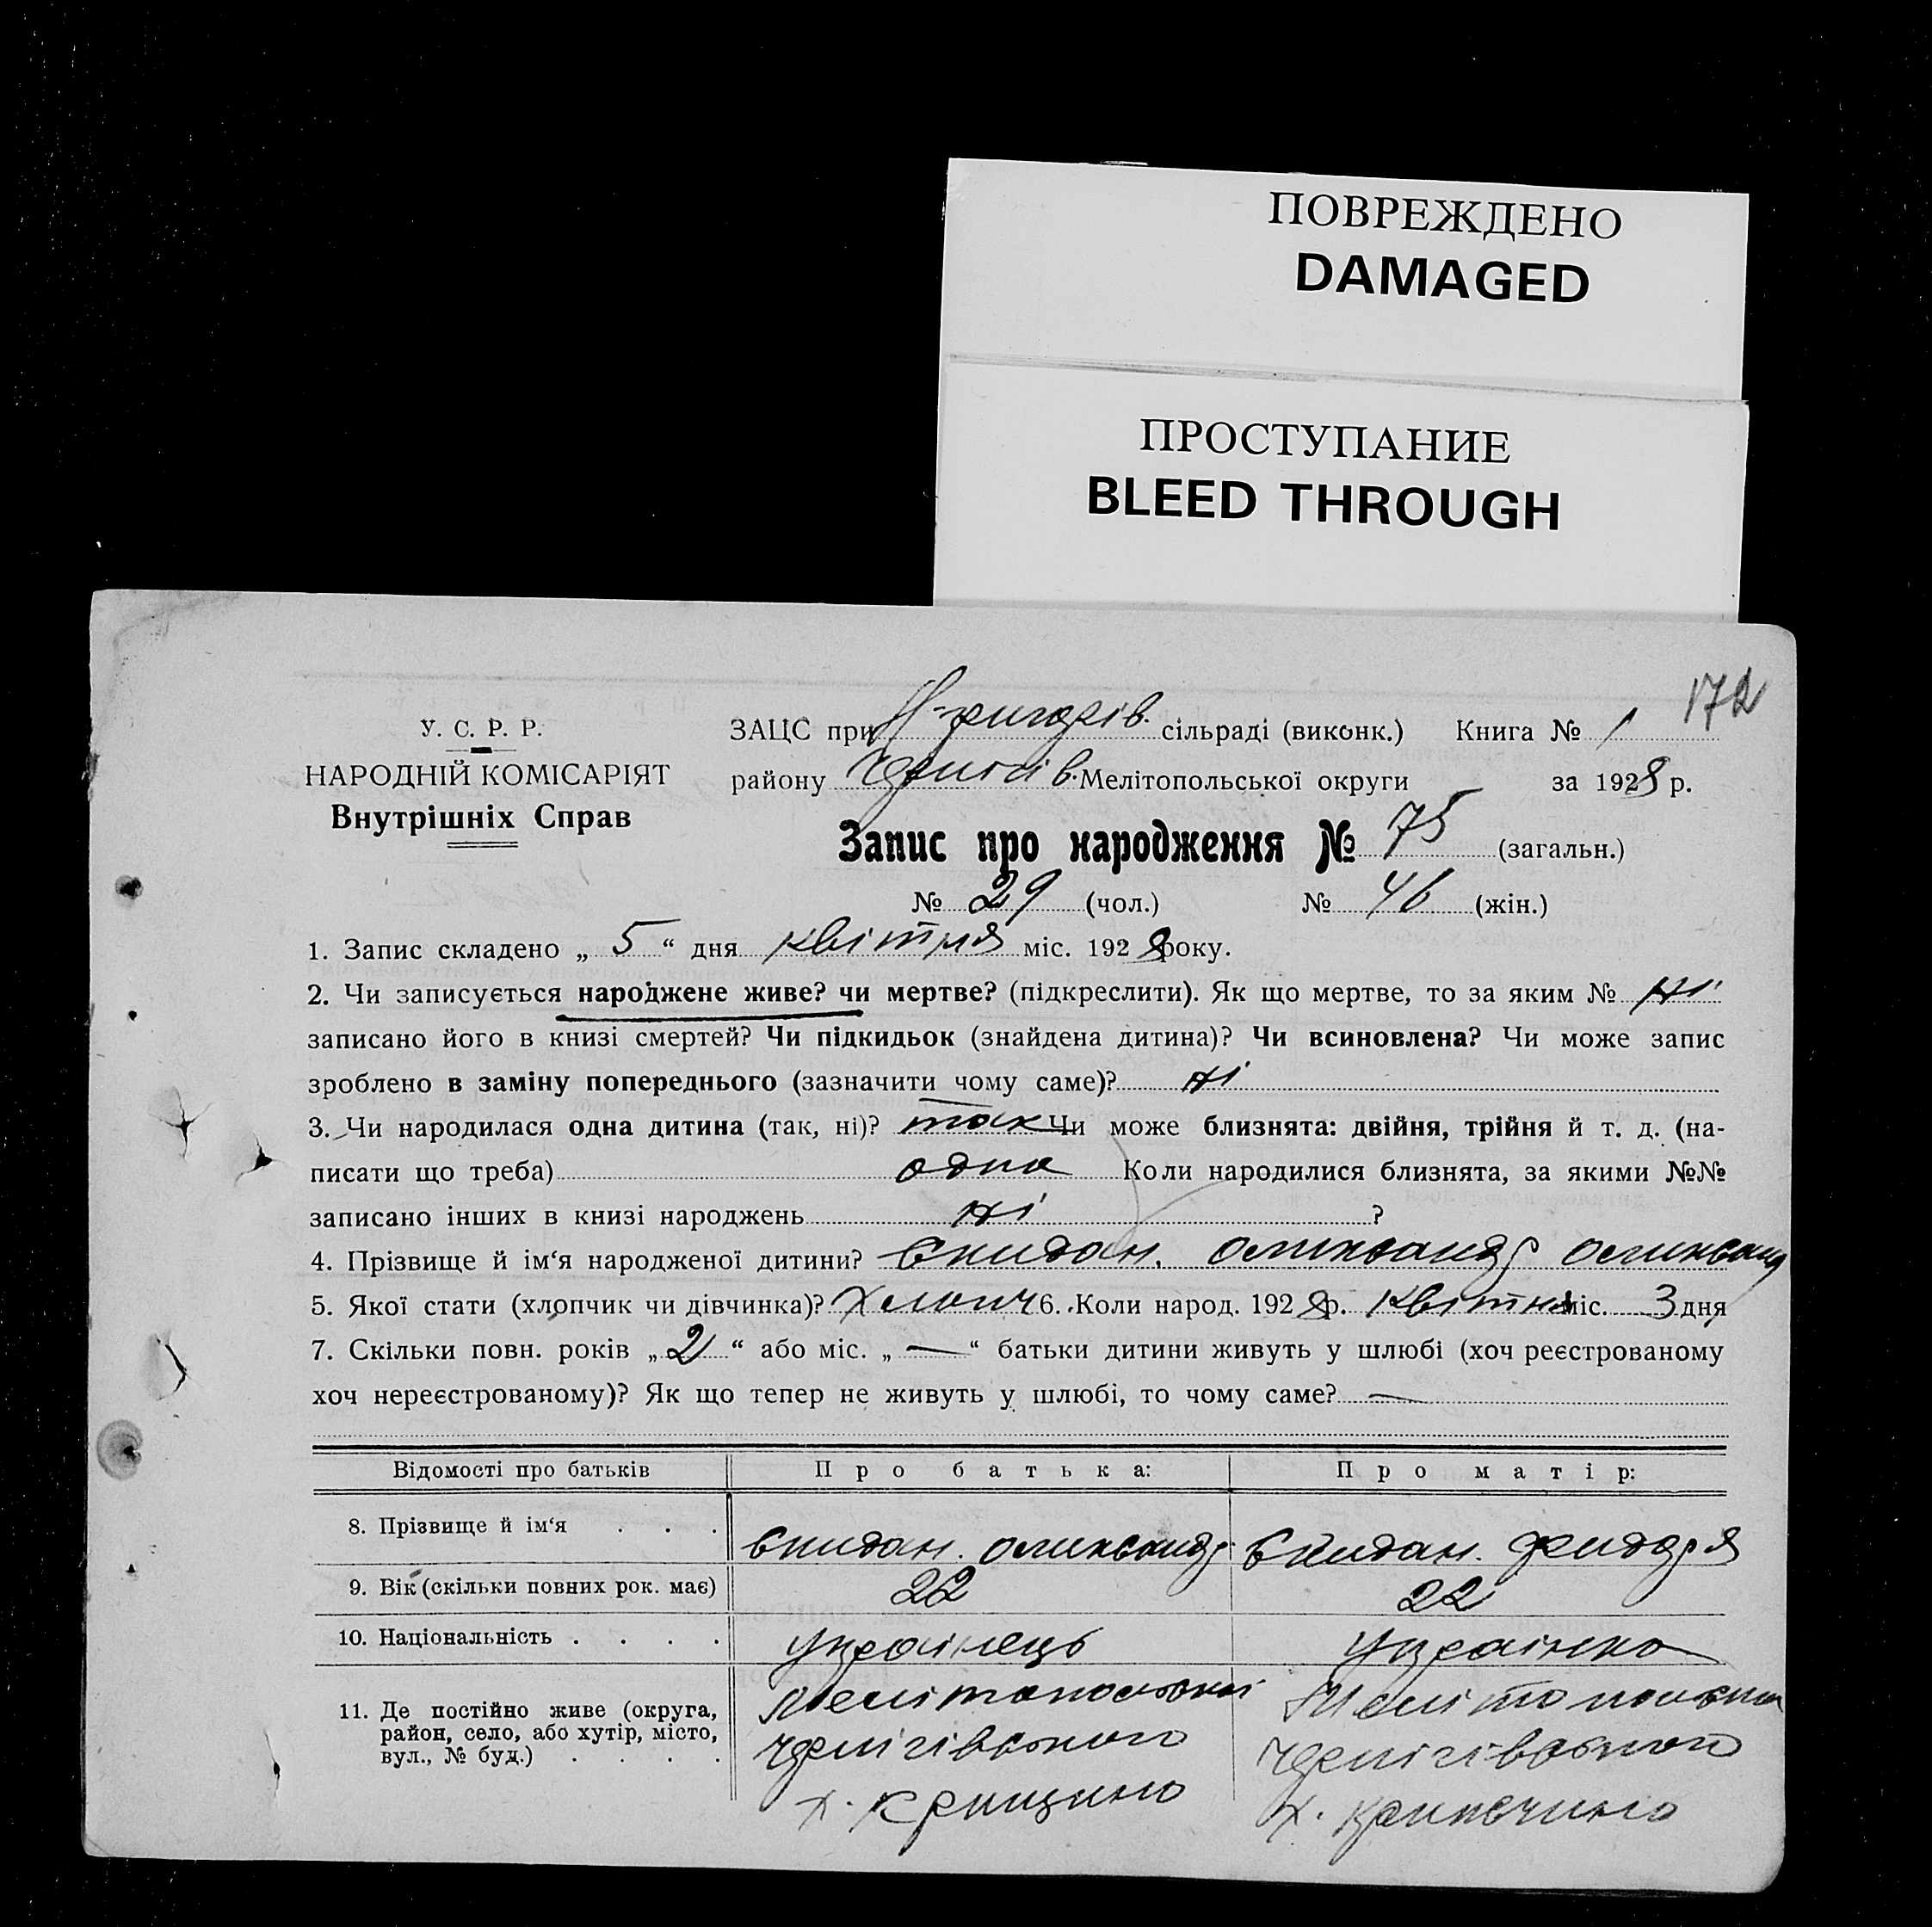 ПОВРЕЖДЕНО
DAMAGED
ПРОСТУПАНИЕ
BLEED THROUGH
172
У. С. Р. Р.
НАРОДНІЙ КОМІСАРІЯТ
Внутрішніх Справ
ЗАЦС при сільраді (виконк.) Книга № 1
району Черніг ів. Мелітопольської округи за 1928 р.
Запис про народження № 75 (загальн.)
№ 29 (чол.) № 46 (жін.)
1. Запис складено „ 5 “ дня квітня міс. 1928 року.
2. Чи записується народжене живе? чи мертве? (підкреслити). Як що мертве, то за яким № ні
записано його в книзі смертей? Чи підкидьок (знайдена дитина)? Чи всиновлена? Чи може запис
зроблено в заміну попереднього (зазначити чому саме)? ні
3. Чи народилася одна дитина (так, ні)? так Чи може близнята: двійня, трійня й т. д. (на-
писати що треба) одна Коли народилися близнята, за якими №№
записано інших в книзі народжень ні ?
4. Прізвище й ім‘я народженої дитини? Скидан. Олександр
5. Якої стати (хлопчик чи дівчинка)? Хлопч 6. Коли народ. 1928 р. Квітня міс. 3 дня
7. Скільки повн. років „ 2 “ або міс. „ — “ батьки дитини живуть у шлюбі (хоч реєстрованому
хоч нереєстрованому)? Як що тепер не живуть у шлюбі, то чому саме? —
Відомості про батьків Про батька: Про матір:
8. Прізвище й ім‘я . . . Скидан. Олександр Скидан.
9. Вік (скільки повних рок. має) 22 22
10. Національність . . . . Українець Українка
11. Де постійно живе (округа,
район, село, або хутір, місто,
вул., № буд.) . . . .
Мелітопольської
Чернігівського
х.
Мелітопольської
Чернігівського
х.